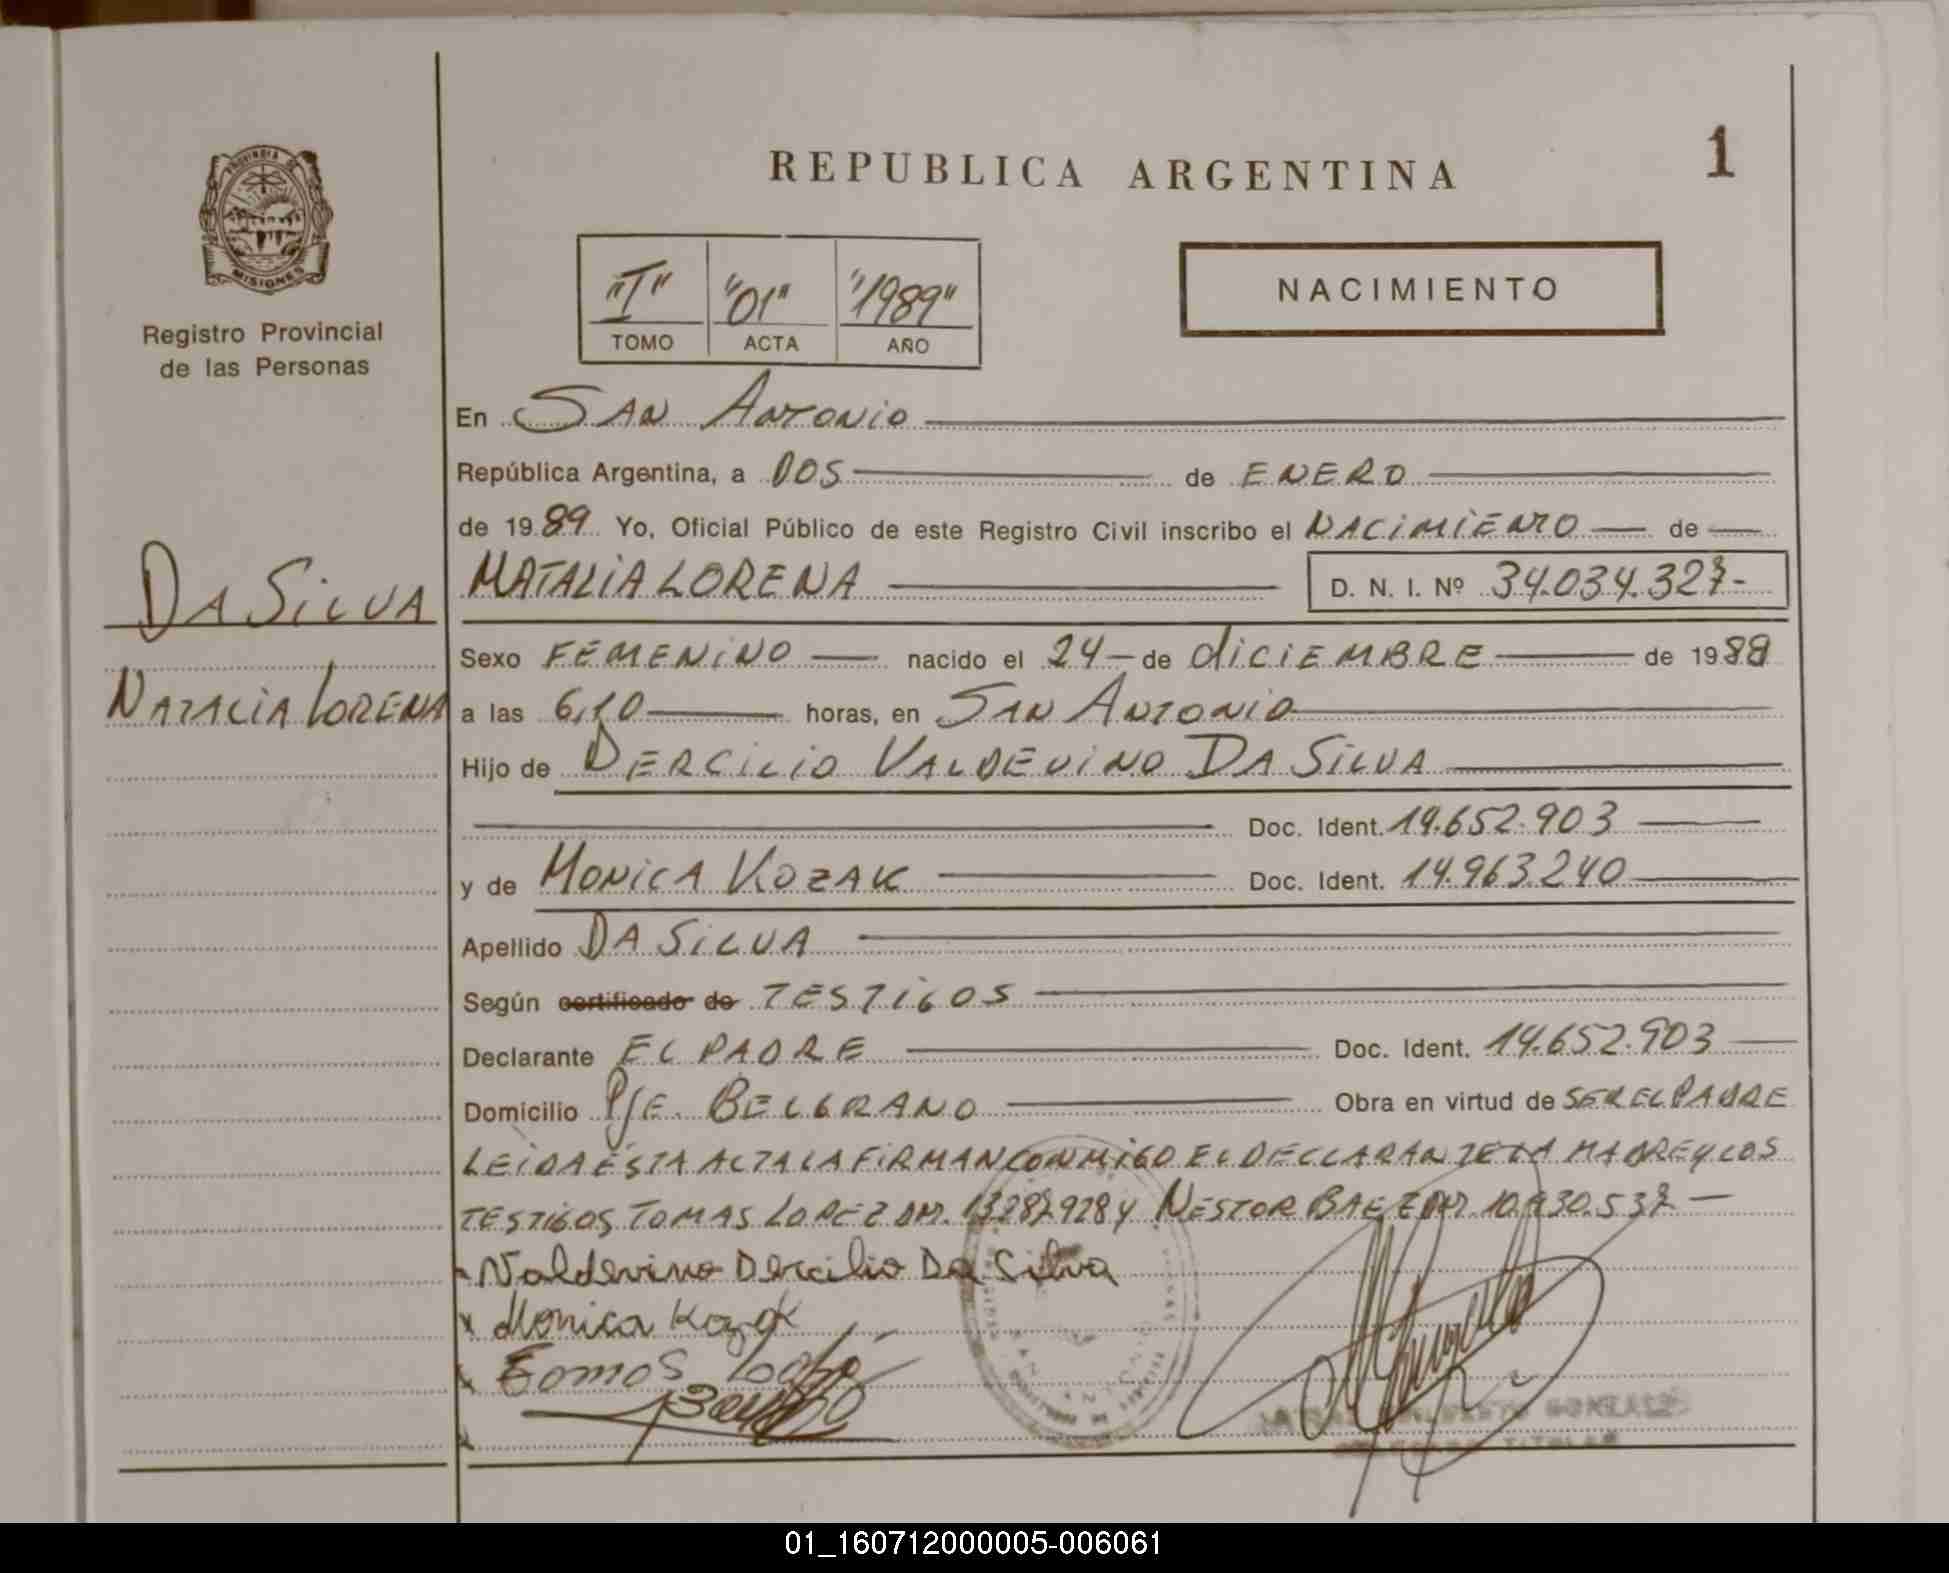 REPUBLICA ARGENTINA
1
PROVINCIA DE
MISIONES
Registro Provincial
de las Personas
"I" "01" "1989"
TOMO ACTA AÑO
NACIMIENTO
En SAN ANTONIO
República Argentina, a DOS de ENERO
de 1989 Yo, Oficial Público de este Registro Civil inscribo el NACIMIENTO de
NATALIA LORENA D. N. I. Nº 34.034.327-
DA SILVA
NATALIA LORENA
Sexo FEMENINO nacido el 24 de diciEMBRE de 1988
a las 6,10 horas, en SAN ANTONIO
Hijo de DERCILIO VALDEVINO DA SILVA
Doc. Ident. 14.652.903
y de MONICA KOZAK Doc. Ident. 14.963.240
Apellido DA SILVA
Según certificado de TESTIGOS
Declarante EL PADRE Doc. Ident. 14.652.903
Domicilio PJE. BELGRANO Obra en virtud de SER EL PADRE
LEIDA ESTA ACTA LA FIRMAN CONMIGO EL DECLARANTE LA MADRE Y LOS
TESTIGOS TOMAS LOPEZ DNI. 13.287.928 Y NESTOR BAEZ DNI 10.930.537
Valdevino Dercilio Da Silva
x Monica Kozak
Tomas
01_160712000005-006061